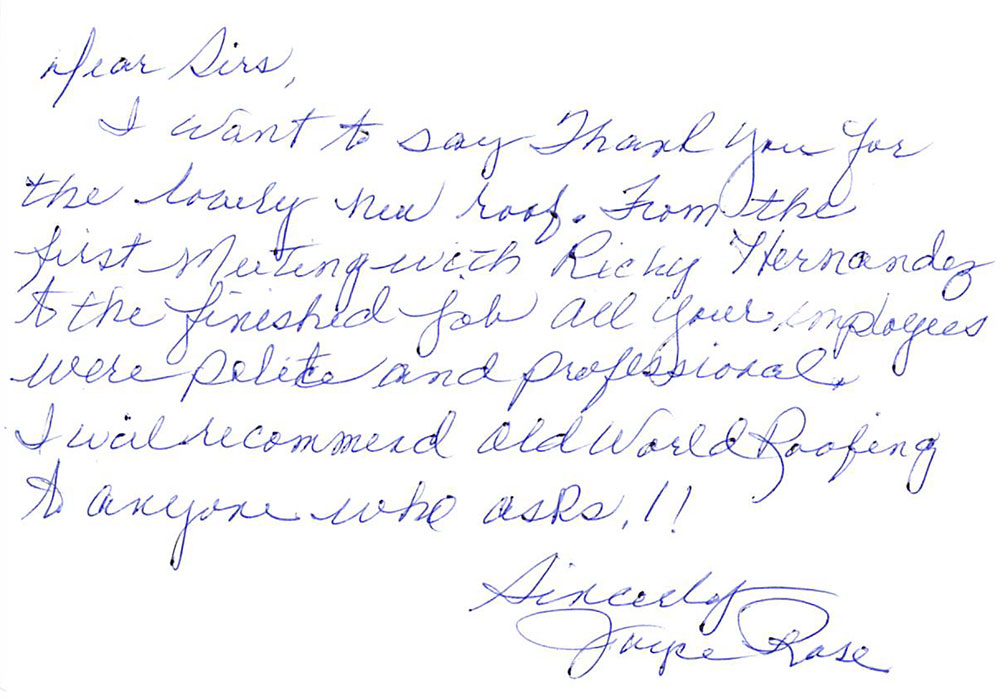 Dear Sirs,
I want to say Thank You for
the lovely new roof. From the
first Meeting with Ricky Hernandez
to the finished job all your employees
were polite and professional.
I will recommend Old World Roofing
to anyone who asks.!!
Sincerly
Joyce Rose